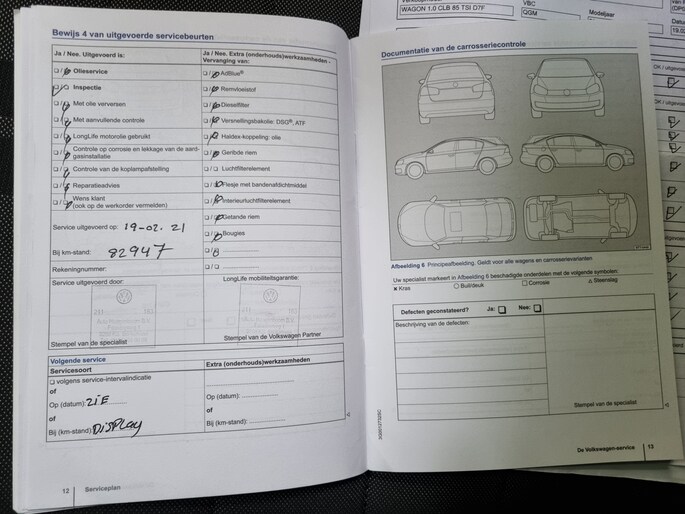 Bewijs 4 van uitgevoerde servicebeurten
Ja / Nee. Uitgevoerd is:
Olieservice
Inspectie
Met olie verversen
Met aanvullende controle
LongLife motorolie gebruikt
Controle op corrosie en lekkage van de aard-
gasinstallatie
Controle van de koplampafstelling
Reparatieadvies
Wens klant
(ook op de werkorder vermelden)
Service uitgevoerd op: 19-02. 21
Bij km-stand: 82947
Rekeningnummer:
Service uitgevoerd door:
Stempel van de specialist
Ja / Nee. Extra (onderhouds)werkzaamheden -
Vervanging van:
AdBlue®
Remvloeistof
Dieselfilter
Versnellingsbakolie: DSG®, ATF
Haldex-koppeling: olie
Geribde riem
Luchtfilterelement
Flesje met bandenafdichtmiddel
Interieurluchtfilterelement
Getande riem
Bougies
LongLife mobiliteitsgarantie:
Stempel van de Volkswagen Partner
Volgende service
Servicesoort
volgens service-intervalindicatie
of
Op (datum): ZIE
of
Bij (km-stand): DISPLAY
Extra (onderhouds)werkzaamheden
Op (datum):
of
Bij (km-stand):
12 Serviceplan
Documentatie van de carrosseriecontrole
Afbeelding 6 Principeafbeelding. Geldt voor alle wagens en carrosserievarianten
Uw specialist markeert in Afbeelding 6 beschadigde onderdelen met de volgende symbolen:
Kras
Buil/deuk
Corrosie
Steenslag
Defecten geconstateerd? Ja: Nee:
Beschrijving van de defecten:
Stempel van de specialist
De Volkswagen-service 13
WAGON 1.0 CLB 85 TSI D7F
VBC
QGM
Modeljaar